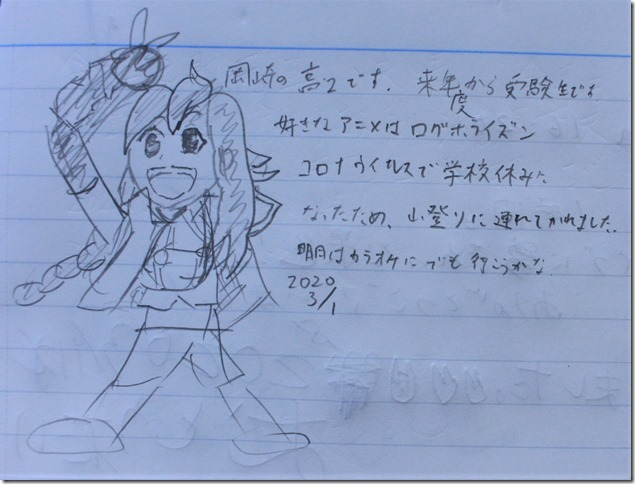 岡崎の高2です. 来年度から受験生です
好きなアニメはログホライズン
コロナウイルスで学校休みに
なったため、山登りに連れてかれました.
明日はカラオケにでも行こうかな
2020
3/1